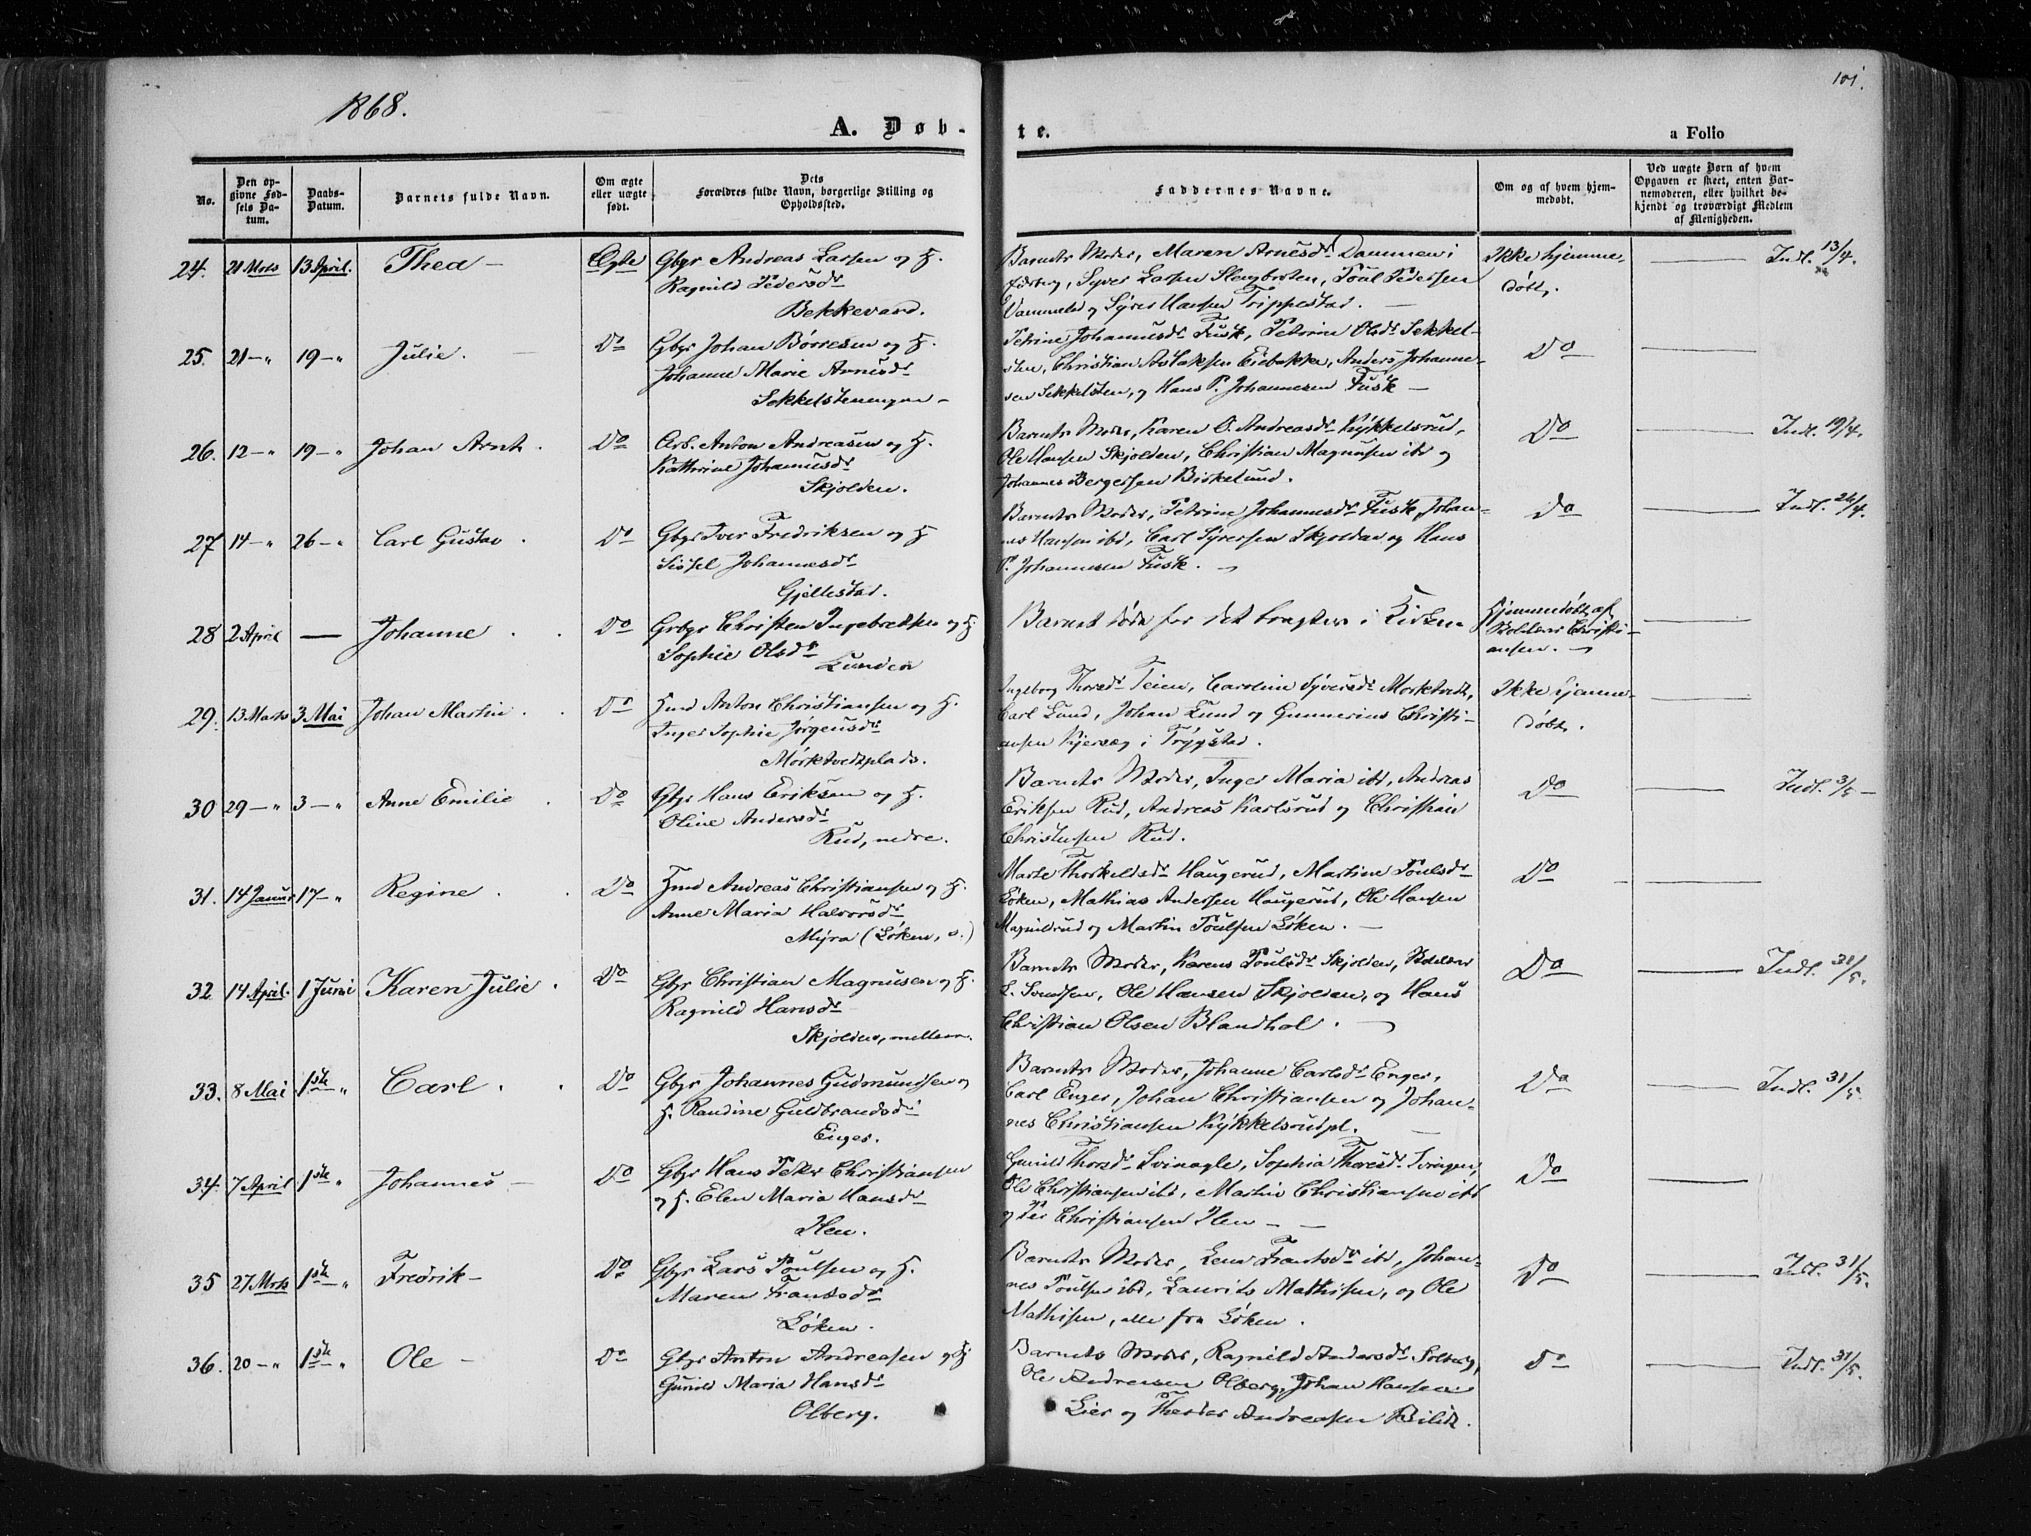 1868.
101.
A. Døb-
te.
a Folio
No.
Den op-
givne Fød-
sels Da-
tum.
Daabs-
Datum.
Barnets fulde Navn.
Om ægte
eller uægte
født.
Dets
Forældres fulde Navn, borgerlige Stilling og
Opholdssted.
Faddernes Navne.
Om og af hvem hjem-
medøbt.
Ved uægte Børn af hvem
Opgaven er skeet, enten Bar-
nemoderen, eller hvilket be-
kjendt og troværdigt Medlem
af Menigheden.
24. 21 Marts 13 April. Thea – Ægte
Gbgr Andreas Larsen og H.
Ragnild Pedersdr
Bekkevard.
Barnets Moder, Maren Arnesdr Dammen i
Syver Larsen Slengbroten, Poul Pedersen
og Syver Hansen Trippestad. –
Ikke hjemme-
døbt.
Indl. 13/4.
25. 21 – „ 19 – „ Julie. – Do
Gbgr Johan Börresen og H.
Johanne Marie Arnesdr
Sekkelstenengen –
Petrine Johannesdr Fusk, Petrine Olsdr Sekkel-
sten, Christian Aslaksen Eidbakke, Anders Johanne-
sen Sekkelsten, og Hans P. Johannesen Fusk –
Do
26. 12 – „ 19 – „ Johan Arnt. Do
Arb. Anton Andreasen og H.
Kathrine Johannesdr
Skjolden.
Barnets Moder, Karen O. Andreasdr Kykkelsrud,
Ole Hansen Skjolden, Christian Magnusen ibd og
Johannes Bergersen Birkelund.
Do
Indl. 19/4.
27 14 – „ 26 – „ Carl Gustav. Do
Gbgr Iver Fredriksen og H
Sissel Johannesdr
Gjellestad.
Barnets Moder, Petrine Johannesdr Fusk, Johan-
nes Hansen ibd, Carl Syversen Skjolden og Hans
P. Johannesen Fusk. –
Do
Indl. 26/4.
28 2 April — Johanne. Do
Grbgr Christen Ingebretsen og H
Sophie Olsdr
Lunden
Barnet døde før det bragtes i Kirken
Hjemmedøbt af
Christi-
ansen. –
29. 13 Marts 3 Mai Johan Martin. Do
Hmd Anton Christiansen og H.
Inger Sophie Jörgensdr
Mörktvedtplads.
Ingeborg Thoresdr Teien, Caroline Syversdr Morktvedt,
Carl Lund, Johan Lund og Gunnerius Christi-
ansen Kjersæg i Trygstad.
Ikke hjemme-
døbt.
30 29 – „ 3 – „ Anne Emilie. Do
Gbgr Hans Eriksen og H.
Oline Andersdr
Rud, nedre.
Barnets Moder, Inger Maria ibd, Andreas
Eriksen Rud, Andreas Karlsrud og Christian
Christensen Rud.
Do
Indl. 3/5 –
31. 14 Januar 17 – „ Regine. Do
Hmd Andreas Christiansen og H.
Anne Maria Halvorsdr
Myra (Löken, ö.)
Marte Thorkeldsdr Haugerud, Martine Poulsdr
Löken, Mathias Andersen Haugerud, Ole Hansen
Magnildrud og Martin Poulsen Löken. –
Do
32 14 April. 1 Juni Karen Julie. Do
Gbgr Christian Magnusen og H.
Ragnild Hansdr
Skjolden, mellem.
Barnets Moder, Karens Poulsdr Skjolden,
L. Svendsen, Ole Hansen Skjolden, og Hans
Christian Olsen Blandhol. –
Do
Indl. 31/5.
33. 8 Mai 1ste „ Carl. Do
Gbgr Johannes Gudmundsen og
H. Randine Guldbrandsdr
Enger.
Barnets Moder, Johanne Carlsdr Enger,
Carl Enger, Johan Christiansen og Johan-
nes Christiansen Kykkelsrudpl.
Do
Indl. 31/5.
34. 7 April 1ste „ Johannes – Do
Gbgr Hans Peter Christiansen
og H. Elen Maria Hansdr
Hen.
Gunild Thorsdr Svinagle, Sophia Thoresdr Svingen,
Ole Christiansen ibd, Martin Christiansen ibd
og Per Christiansen Hen – –
Do
35 27 Marts 1ste „ Fredrik – Do
Gbgr Lars Poulsen og H.
Maren Frantsdr
Löken.
Barnets Moder, Lena Frantsdr ibd, Johan-
nes Poulsen ibd, Laurits Mathisen, og Ole
Mathisen, alle fra Löken.
Do
Indl. 31/5.
36. 20 – „ 1ste – „ Ole – Do
Gbgr Anton Andreasen og H
Gunild Maria Hansdr
Olberg.
Barnets Moder, Ragnild Andersdr Solberg,
Ole Andreasen Olberg, Johan Hansen
Lier og Theodor Andreasen Bilit.
Do
Indl. 31/5.